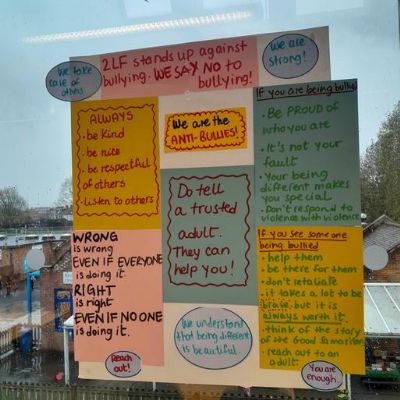 We take
care of
others
2LF stands up against
bullying. WE SAY NO to
bullying!
We are
Strong!
ALWAYS
• be kind
• be nice
• be respectful
of others
• Listen to others
We are the
ANTI-BULLIES!
If you are being bullied
• Be PROUD of
who you are
• It's not your
fault
• Your being
different makes
you special
• Don't respond to
violence with violence
Do tell
a trusted
adult.
They can
help you!
WRONG
is wrong
EVEN IF EVERYONE
is doing it.
RIGHT
is right
EVEN IF NO ONE
is doing it.
If you see someone
being bullied
• help them
• be there for them
• don't retaliate
• it takes a lot to be
brave, but it is
always worth it.
• think of the story
of the Good Samaritan
• reach out to an
adult
We understand
that being different
is beautiful.
Reach
out!
You are
enough.